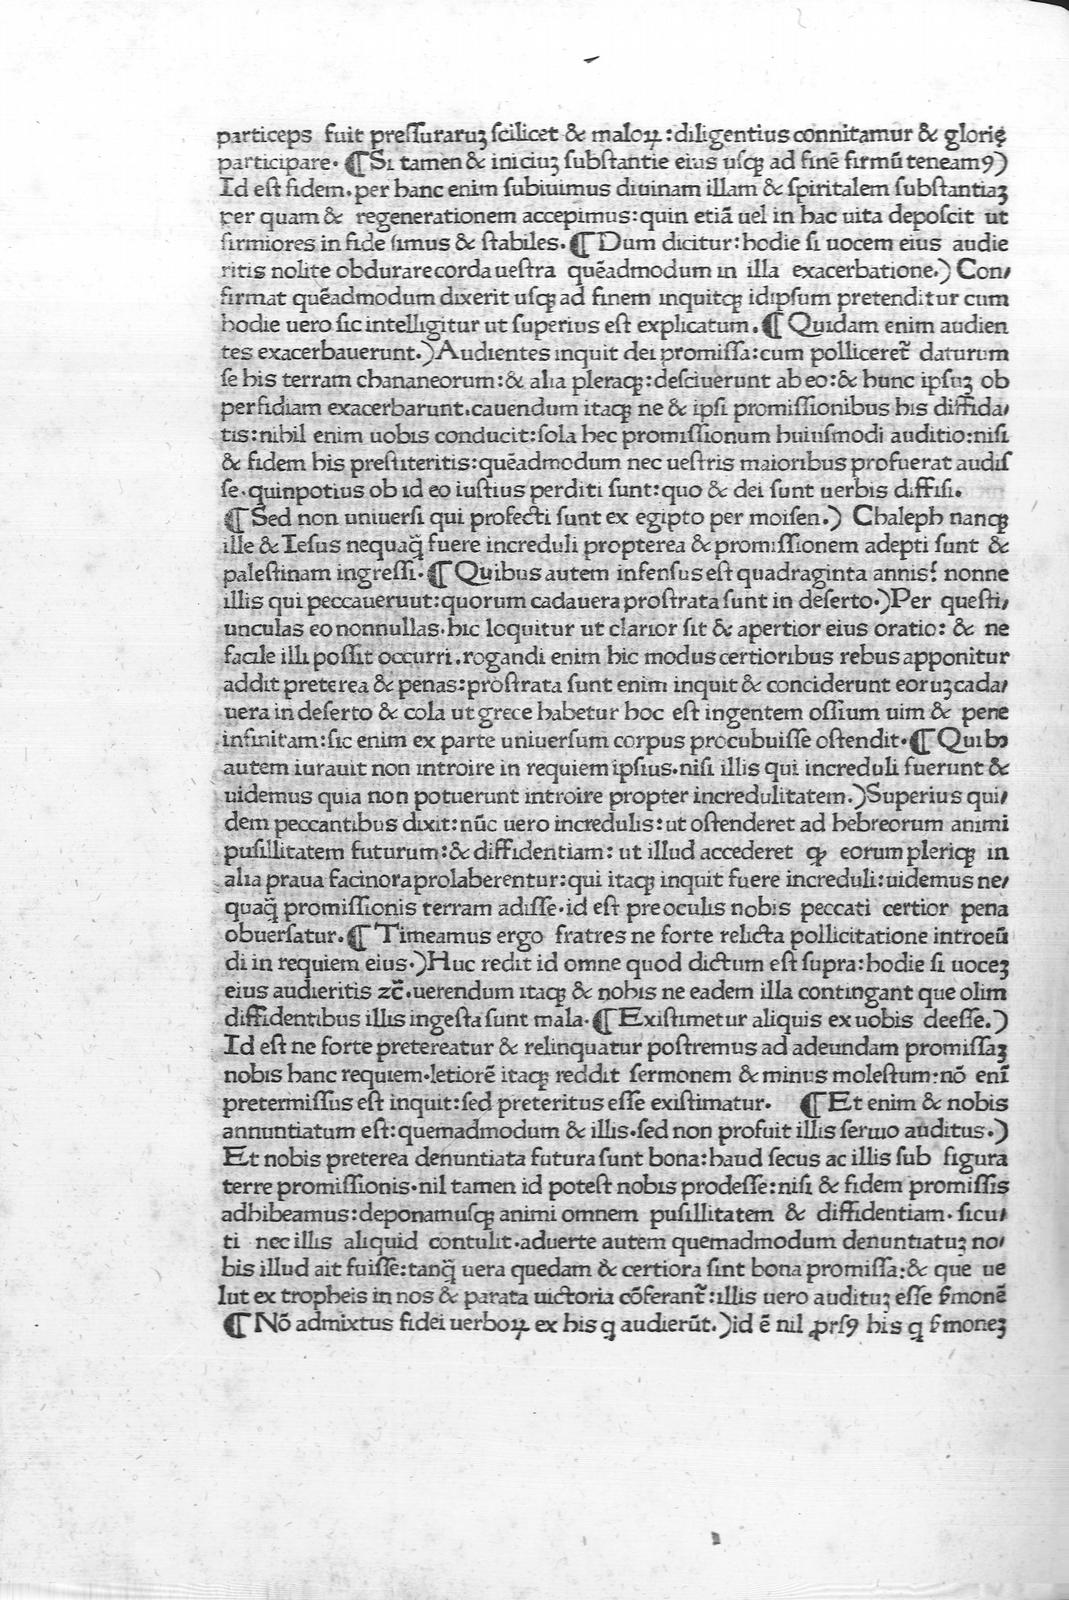 particeps fuit preſſuraruꝫ ſcilicet & maloꝝ :diligentius connitamur & glorię
participare. ¶ Si tamen & iniciuꝫ ſubſtantie eius uſqꝫ ad finē firmū teneamꝰ)
Id eſt fidem.per hanc enim ſubiuimus diuinam illam & ſpiritalem ſubſtantiaꝫ
per quam & regenerationem accepimus:quin etiā uel in hac uita depoſcit ut
firmiores in fide ſimus & ſtabiles.¶ Dum dicitur:hodie ſi uocem eius audie
ritis nolite obdurare corda ueſtra quēadmodum in illa exacerbatione.) Con/
firmat quēadmodum dixerit uſqꝫ ad finem inquitqꝫ idipſum pretenditur cum
hodie uero ſic intelligitur ut ſuperius eſt explicatum.¶ Quidam enim audien
tes exacerbauerunt.)Audientes inquit dei promiſſa:cum pollicereť daturum
ſe his terram chananeorum:& alia pleraqꝫ:deſciuerunt ab eo:& hunc ipſuꝫ ob
perfidiam exacerbarunt.cauendum itaqꝫ ne & ipſi promiſſionibus his diffida/
tis:nihil enim uobis conducit:ſola hec promiſſionum huiuſmodi auditio:niſi
& fidem his preſtiteritis:quēadmodum nec ueſtris maioribus profuerat audiſ
ſe.quinpotius ob id eo iuſtius perditi ſunt:quo & dei ſunt uerbis diffiſi.
¶ Sed non uniuerſi qui profecti ſunt ex egipto per moiſen.) Chaleph nanqꝫ
ille & Ieſus nequaq̃ fuere increduli propterea & promiſſionem adepti ſunt &
paleſtinam ingreſſi.¶ Quibus autem infenſus eſt quadraginta annis? nonne
illis qui peccaueruut:quorum cadauera proſtrata ſunt in deſerto.)Per queſti/
unculas eo nonnullas.hic loquitur ut clarior ſit & apertior eius oratio: & ne
facile illi poſſit occurri.rogandi enim hic modus certioribus rebus apponitur
addit preterea & penas:proſtrata ſunt enim inquit & conciderunt eoruꝫ cada/
uera in deſerto & cola ut grece habetur hoc eſt ingentem oſſium uim & pene
infinitam:ſic enim ex parte uniuerſum corpus procubuiſſe oſtendit.¶ Quibꝰ
autem iurauit non introire in requiem ipſius.niſi illis qui increduli fuerunt &
uidemus quia non potuerunt introire propter incredulitatem.)Superius qui/
dem peccantibus dixit:nūc uero incredulis:ut oſtenderet ad hebreorum animi
puſillitatem futurum:& diffidentiam: ut illud accederet ꝙ eorum pleriqꝫ in
alia praua facinora prolaberentur:qui itaqꝫ inquit fuere increduli:uidemus ne/
quaq̃ promiſſionis terram adiſſe.id eſt pre oculis nobis peccati certior pena
obuerſatur.¶ Timeamus ergo fratres ne forte relicta pollicitatione introeū
di in requiem eius.)Huc redit id omne quod dictum eſt ſupra:hodie ſi uoceꝫ
eius audieritis ꝛc̃.uerendum itaqꝫ & nobis ne eadem illa contingant que olim
diffidentibus illis ingeſta ſunt mala.¶ Exiſtimetur aliquis ex uobis deeſſe.)
Id eſt ne forte pretereatur & relinquatur poſtremus ad adeundam promiſſaꝫ
nobis hanc requiem.letiorē itaqꝫ reddit ſermonem & minus moleſtum:nō enī
pretermiſſus eſt inquit:ſed preteritus eſſe exiſtimatur. ¶ Et enim & nobis
annuntiatum eſt:quemadmodum & illis.ſed non profuit illis ſermo auditus.)
Et nobis preterea denuntiata futura ſunt bona:haud ſecus ac illis ſub figura
terre promiſſionis.nil tamen id poteſt nobis prodeſſe:niſi & fidem promiſſis
adhibeamus:deponamuſqꝫ animi omnem puſillitatem & diffidentiam.ſicu/
ti nec illis aliquid contulit.aduerte autem quemadmodum denuntiatuꝫ no/
bis illud ait fuiſſe:tanq̃ uera quedam & certiora ſint bona promiſſa:& que ue
lut ex tropheis in nos & parata uictoria cōferanť:illis uero audituꝫ eſſe ẜmonē
¶ Nō admixtus fidei uerboꝝ ex his q audierūt.)id ē nil ꝓrſꝰ his q ẜmoneꝫ